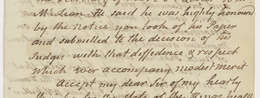 McLean. He said he was highly honored
by the notice you both of his Paper
and submitted to the decision of the
Judges with that diffidence & respect
which ever accompany modest merit
Accept my dear Sir of my hearty